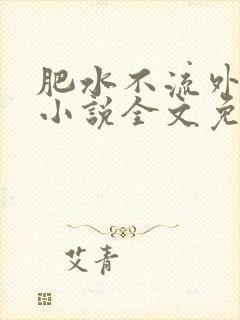 肥水不流外
小说全文免
艾青